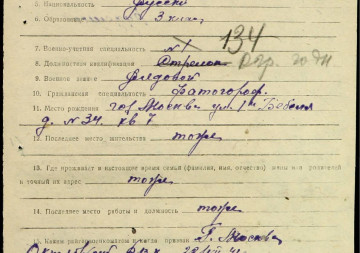 5. Национальность Русский
6. Образование 3 клас.
134
7. Военно-учетная специальность №1
8. Должностная квалификация Стрелок
9. Военное звание Рядовой
10. Гражданская специальность
11. Место рождения гор. Москва ул. 1ая
д. № 34. кв 7
12. Последнее место жительства тоже
13. Где проживает в настоящее время семья (фамилия, имя, отчество) жены или родителей
и точный их адрес тоже
14. Последнее место работы и должность тоже
15. Каким райвоенкоматом и когда призван Г. Москва